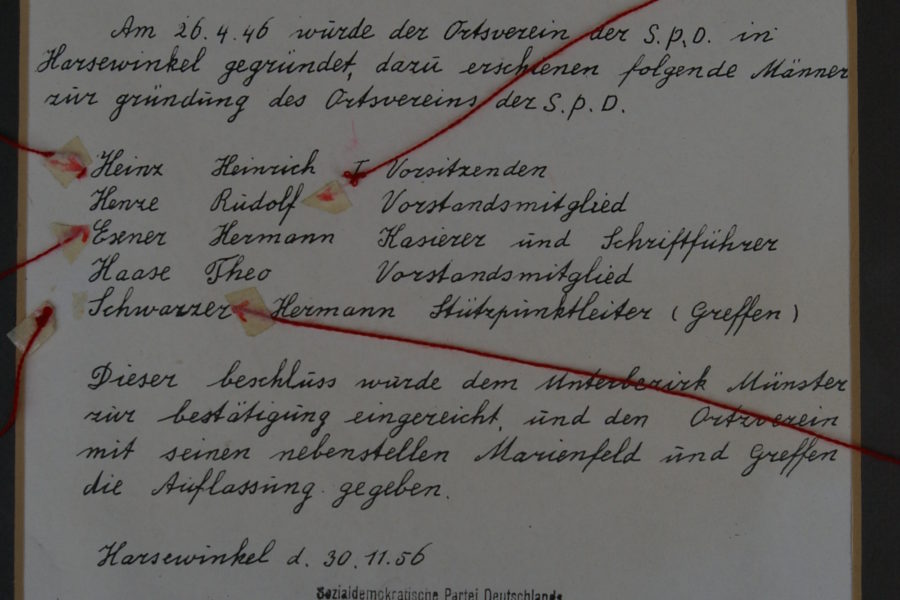 Am 26.4.46 wurde der Ortsverein der S.P.D. in
Harsewinkel gegründet, dazu erschienen folgende Männer
zur gründung des Ortsvereins der S.P.D.
Heinz Heinrich I Vorsitzenden
Henze Rudolf Vorstandsmitglied
Esener Hermann Kasierer und Schriftführer
Haase Theo Vorstandsmitglied
Schwarzer Hermann Stützpunktleiter (Greffen)
Dieser beschluss wurde dem Unterbezirk Münster
zur bestätigung eingereicht, und den Ortzverein
mit seinen nebenstellen Marienfeld und Greffen
die Auflassung gegeben.
Harsewinkel d. 30.11.56
Sozialdemokratische Partei Deutschlands